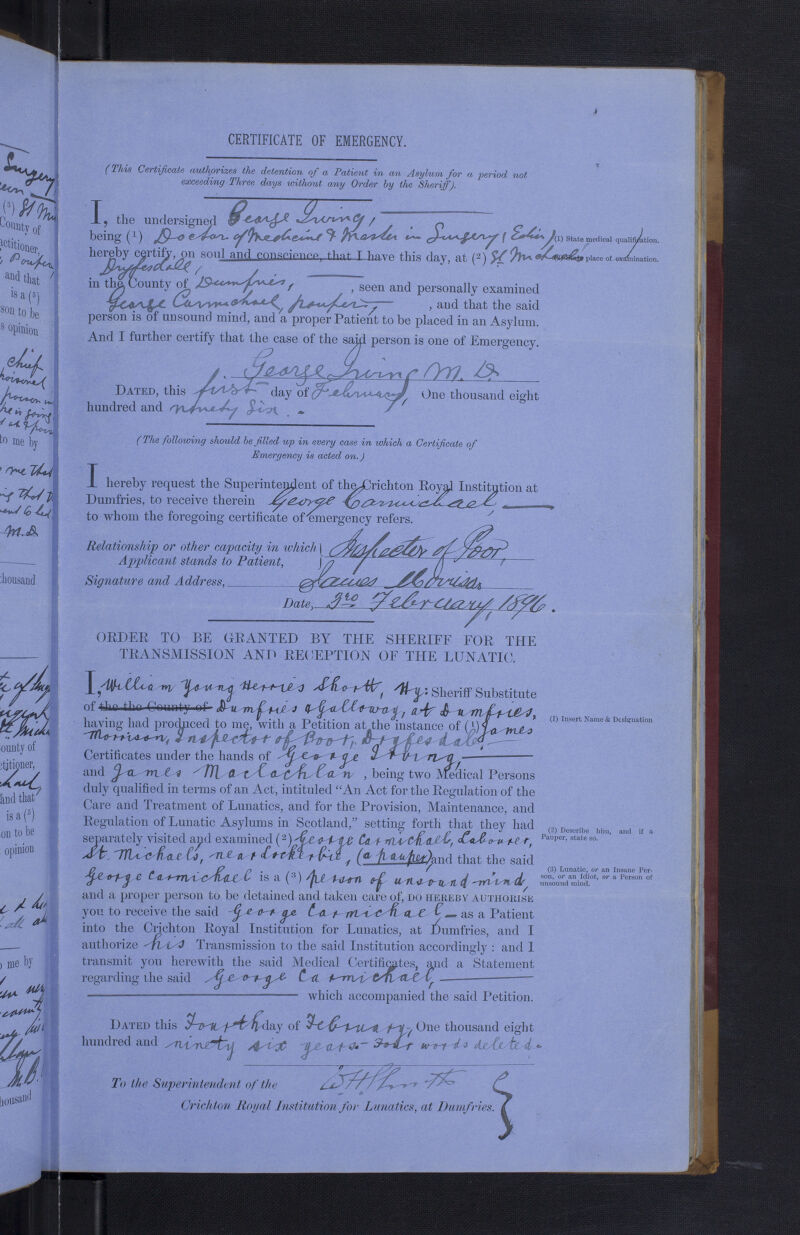 CERTIFICATE OF EMERGENCY.
(This Certificate authorizes the detention of a Patient in an Asylum for a period not
exceeding Three days without any Order by the Sheriff).
I, the undersigned George Irving,
being (1) Doctor of Medicine & Master in Surgery (Edin) (1) State medical qualification.
hereby certify, on soul and conscience, that I have this day, at (2) St Michaels (2) place of examination.
Dryfesdale,
in the County of Dumfries, , seen and personally examined
George Carmichael, pauper, , and that the said
person is of unsound mind, and a proper Patient to be placed in an Asylum.
And I further certify that the case of the said person is one of Emergency.
George Irving M.D.
DATED, this first day of February, One thousand eight
hundred and ninety six.
(The following should be filled up in every case in which a Certificate of
Emergency is acted on.)
I hereby request the Superintendent of the Crichton Royal Institution at
Dumfries, to receive therein George Carmichael,
to whom the foregoing certificate of emergency refers.
Relationship or other capacity in which Inspector of Poor,
Applicant stands to Patient,
Signature and Address, James Morrison
Date, 3rd February, 1896.
ORDER TO BE GRANTED BY THE SHERIFF FOR THE
TRANSMISSION AND RECEPTION OF THE LUNATIC.
I, William Young Herries Shortt, Hy: Sheriff Substitute
of the the County of Dumfries & Galloway, at Dumfries,
having had produced to me, with a Petition at the instance of (1) James (1) Insert Name & Designation
Morrison, Inspector of Poor, Dryfesdale,
Certificates under the hands of George Irving,
and James Maclachlan , being two Medical Persons
duly qualified in terms of an Act, intituled "An Act for the Regulation of the
Care and Treatment of Lunatics, and for the Provision, Maintenance, and
Regulation of Lunatic Asylums in Scotland," setting forth that they had
separately visited and examined (2) George Carmichael, Labourer, (2) Describe him, and if a
Pauper, state so.
St. Michael's, near Lockerbie, (a pauper) and that the said
George Carmichael is a (3) person of unsound mind, (3) Lunatic, or an Insane Per-
son, or an Idiot, or a Person of
unsound mind.
and a proper person to be detained and taken care of, DO HEREBY AUTHORISE
you to receive the said George Carmichael as a Patient
into the Crichton Royal Institution for Lunatics, at Dumfries, and I
authorize his Transmission to the said Institution accordingly : and I
transmit you herewith the said Medical Certificates, and a Statement
regarding the said George Carmichael,
which accompanied the said Petition.
DATED this Fourth day of February, One thousand eight
hundred and ninety six years. Four words deleted.
To the Superintendent of the
Crichton Royal Institution for Lunatics, at Dumfries.